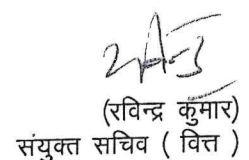 (रविन्द्र कुमार)
संयुक्त सचिव ( वित्त )